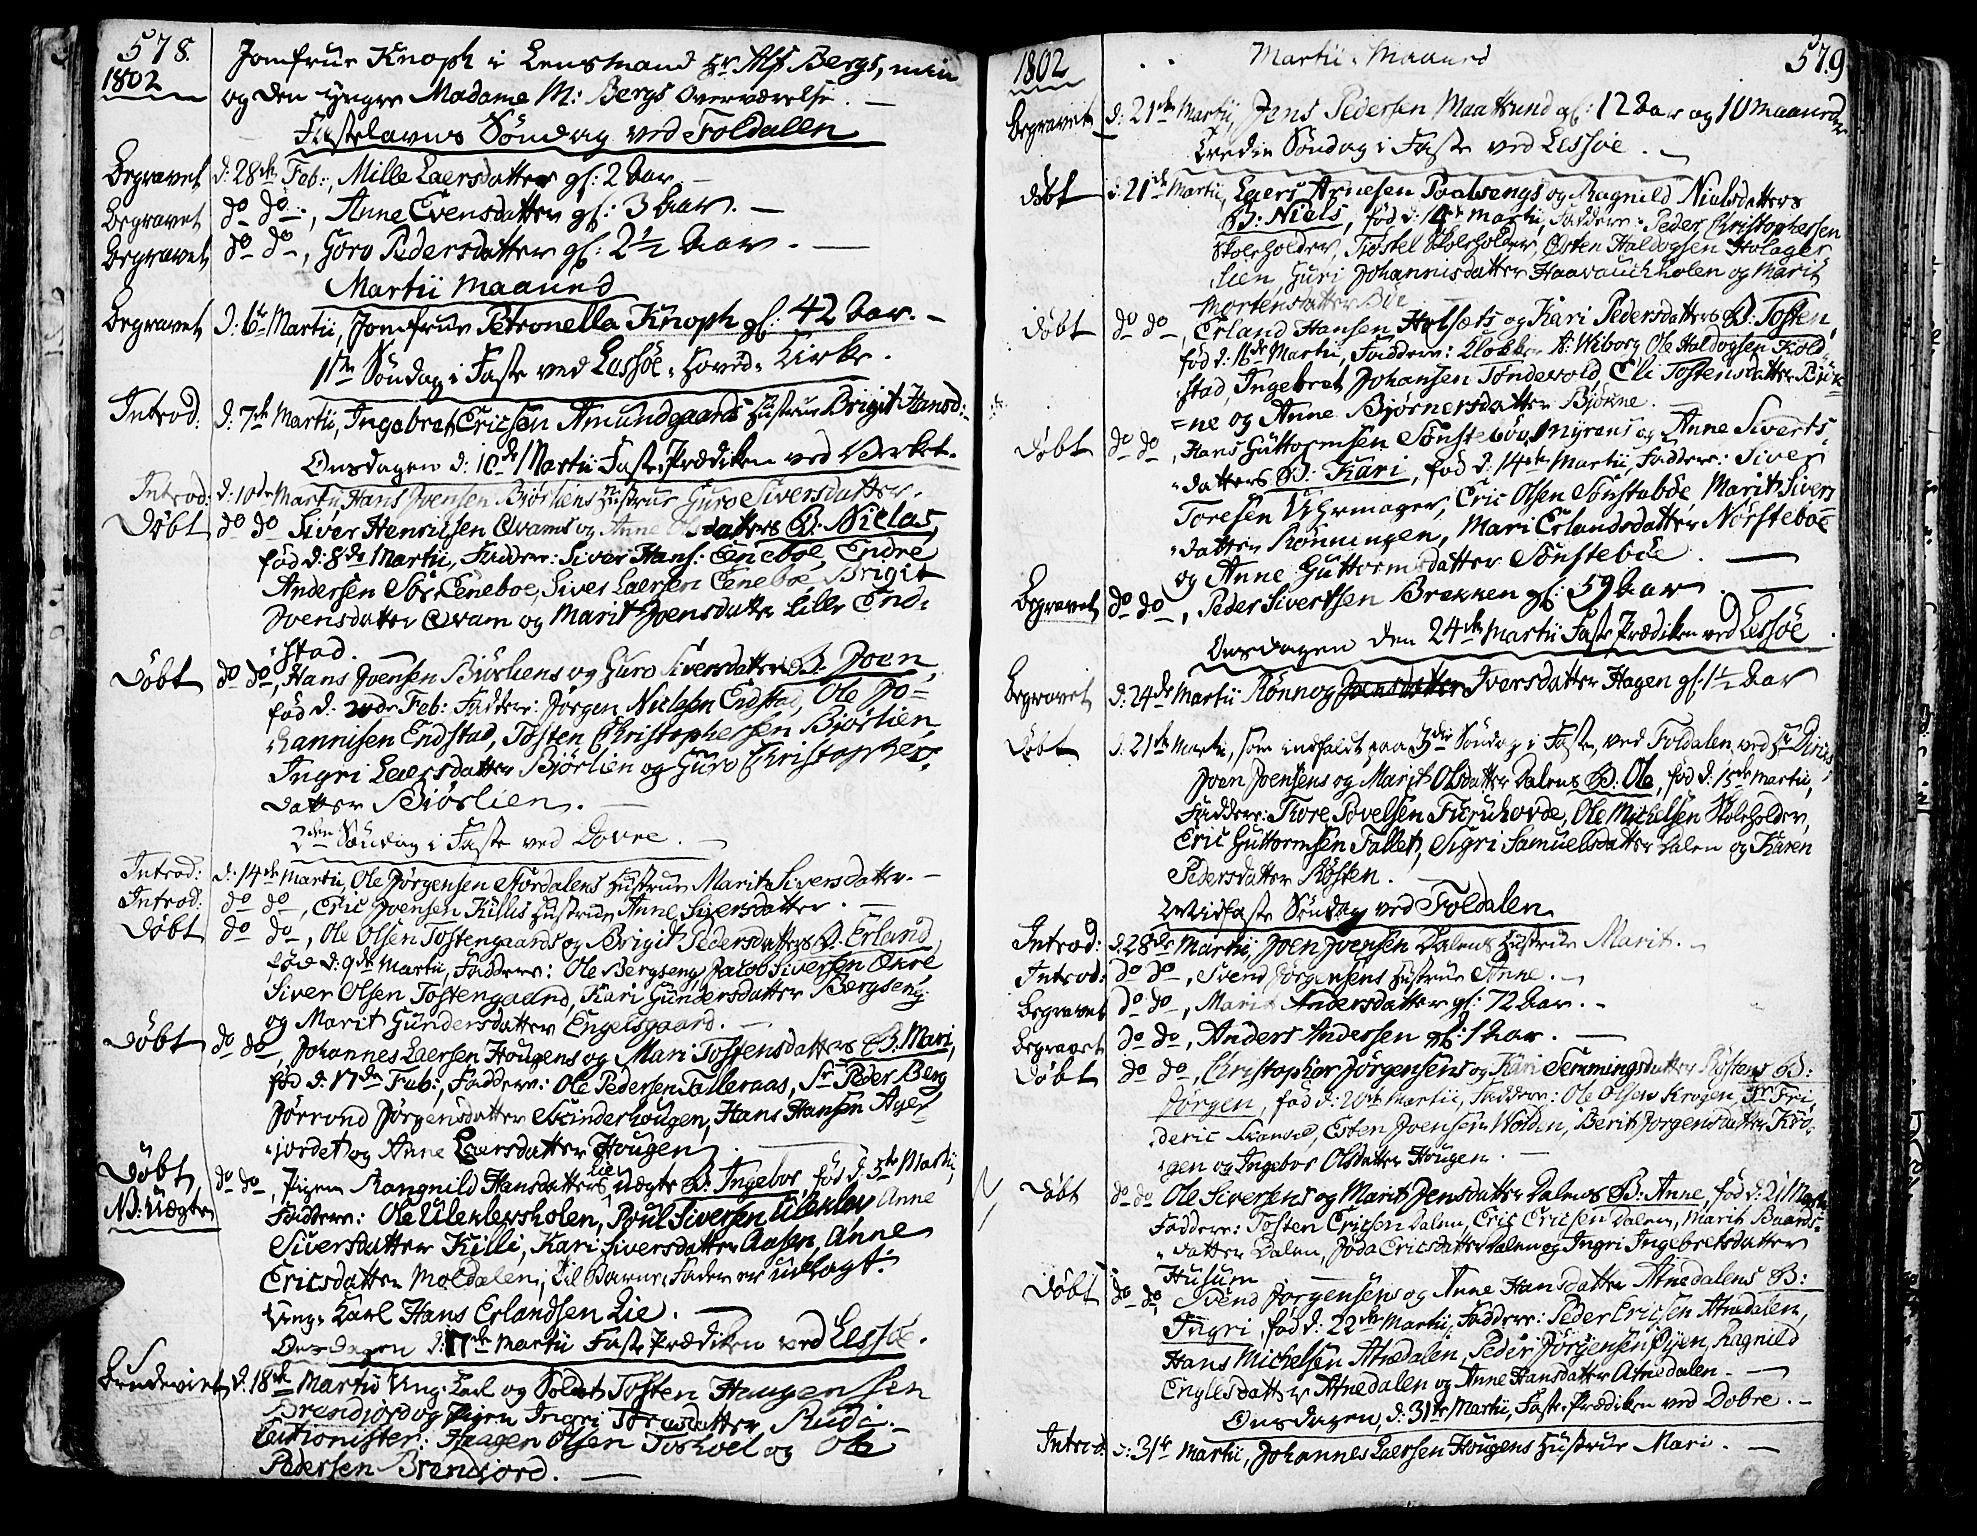 578.
1802
Jomfrue Knoph i Lensmand Hr Alf Bergs, min
og den yngre Madame M: Bergs Overværelse. —
Fastelavns Søndag ved Foldalen
Begravet d: 28de Feb:, Mille Laersdatter gl: 2 Aar. —
Begravet do do —, Anne Evensdatter gl: 3 Aar. —
Begravet do do —, Goro Pedersdatter gl: 2½ Aar. —
Martii Maaned
Begravet d: 6te Martii, Jomfrue Petronella Knoph gl: 42 Aar. —
1ste Søndag i Faste ved Lessøe Hoved-Kirke.
Introd: d: 7de Martii, Ingebret Ericsen Amundgaards Hustrue Brigit Hansd:
Onsdagen d: 10de Martii Faste-Prædiken ved Værket.
Introd: d: 10de Martii, Hans Joensen Bjørliens Hustrue Guro Siversdatter.
Døbt do do Siver Henrichsen Qvams og Anne Olsdatters B: Nielas,
fød d: 8de Martii, Faddere: Siver Hans: Eneboe, Endre
Andersen Sør-Eneboe, Siver Laersen Eneboe, Brigit
Joensdatter Qvam og Marit Joensdatter Lille End-
stad. —
Døbt do do, Hans Joensen Bjørliens og Guro Siversdatters B: Joen,
fød d: 20de Feb: Faddere: Jørgen Nielsen Endstad, Ole Jo=
hannisen Endstad, Tosten Christophersen Bjørlien,
Ingri Laersdatter Bjørlien og Guro Christophers-
datter Bjørlien. —
2den Søndag i Faste ved Dovre. —
Introd: d: 14de Martii, Ole Jørgensen Stordalens Hustrue Marit Siversdatter. —
Introd: do do —, Eric Joensen Killis Hustrue Anne Siversdatter. —
Døbt do do —, Ole Olsen Tostengaards og Brigit Pedersdatters B: Erland,
fød d: 9de Martii, Faddere: Ole Bergseng, Jacob Siversen Økre
Siver Olsen Tostengaard, Kari Gundersdatter Bergseng
og Marit Gundersdatter Engelsgaard. —
Døbt do do, Johannes Laersen Hougens og Mari Tostensdatters B: Mari,
fød d: 17de Feb:, Faddere: Ole Pedersen Talleraas, Sr Peder Berg
Jørrond Jørgensdatter Skinderhougen, Hans Hansen Ager-
jordet og Anne Laersdatter Hougen.
Døbt do do, Pigen Rangnild Hansdatters Lie uægte B: Ingebor fød d: 5te Martii,
NB: Uægte Faddere: Ole Uleklevsholen, Poul Siversen Uleklev Anne
Siversdatter Killi, Kari Siversdatter Aasen, Anne
Ericsdatter Moldalen; til Barne-Fader er udlagt:
Ung-Karl Hans Erlandsen Lie. —
Onsdagen d: 17de Martii Faste-Prædiken ved Lessøe.
Brudeviet d: 18de Martii Ung-Karl og Soldat Tosten Haagensen
Brendjord og Pigen Ingri datter Rudi. —
Cautionister: Haagen Olsen Toshoel og Ole
Pedersen Brendjord. —
1802
Martii Maaned
579
Begravet d: 21de Martii, Jens Pedersen Maatsund gl: 12 Aar og 10 Maaneder
Tredie Søndag i Faste ved Lessøe. —
Døbt d: 21de Martii, Laers Arnesen Paalsengs og Ragnild Nielsdatters
B: Niels, fød d: 14de Martii, Faddere: Peder Christophersen
Skoleholder, Tiøstel Skoleholder, Østen Haldogsen Holager
lien, Guri Johannisdatter Haavauckholen og Marit
Mortensdatter Bøe
Døbt do do, Erland Hansen Holsæts og Kari Pedersdatters B: Tosten,
fød d: 16de Martii, Faddere: Klokker A: Wiborg, Ole Haldogsen Kold-
stad, Ingebret Johansen Tøndevold, Eli Tostensdatter Bjøk
=ne og Anne Bjørnersdatter Bjøkne. —
Døbt do do, Hans Guttormsen Sønstebøe Myrens og Anne Siverts-
datters B: Kari, fød d: 14de Martii, Faddere: Siver
Toresen Uhrmager, Eric Olsen Sønstebøe, Marit Sivers-
datter Rønningen, Mari Erlandsdatter Nørsteboe
og Anne Guttormsdatter Sønstebøe —
Begravet do do —, Peder Sivertsen Brekken gl: 59 Aar —
Onsdagen den 24de Martii Faste Prædiken ved Lessøe.
Begravet d: 24de Martii Rønnog Iversdatter Hagen gl: 1½ Aar
Døbt d: 21de Martii, som indfaldt paa 3die Søndag i Faste, ved Foldalen, ved Hr
Joen Joensens og Marit Olsdatter Dalens B: Ole, fød d: 15de Martii,
Faddere: Thore Povelsen Furuhovde, Ole Michelsen Skoleholder,
Eric Guttormsen Fallet, Sigri Samuelsdatter Dalen og Karen
Pedersdatter Røsten.
Midfaste Søndag ved Foldalen
Introd: d. 28de Martii, Joen Joensen Dalens Hustrue Marit. —
Introd: do do —, Svend Jørgensens Hustrue Anne. —
Begravet do do —, Marit Andersdatter gl: 72 Aar. —
Begravet do do, Anders Andersen gl: 1 Aar. —
Døbt do do, Christophor Jørgensens og Kari Semmingsdatter Røstens B:
Jørgen, fød d: 20de Martii, Faddere: Ole Olsen Krogen, Hr Fri-
deric, Esten Joensen Wolden, Berit Jørgensdatter Kro-
gen og Ingebor Olsdatter Hougen. —
Døbt do do Ole Siversens og Marit Jensdatter Dalens B: Anne, fød d: 21 Martii
Faddere: Tosten Ericsen Dalen, Eric Ericsen Dalen, Marit Baards-
datter Dalen, Jøda Ericsdatter Dalen og Ingri Ingebretsdatter
Husum —
Døbt do do, Svend Jørgensens og Anne Hansdatter Atnedalens B:
Ingri, fød d: 22de Martii, Faddere: Peder Ericsen Atnedalen,
Hans Michelsen Atnedalen, Peder Jørgensen, Ragnild
Englesdatter Atnedalen og Anne Hansdatter Atnedalen. —
Onsdagen, d: 31te Martii, Faste-Prædiken ved Dovre. —
Introd: d: 31te Martii, Johannes Laersen Hougens Hustrue Mari. —